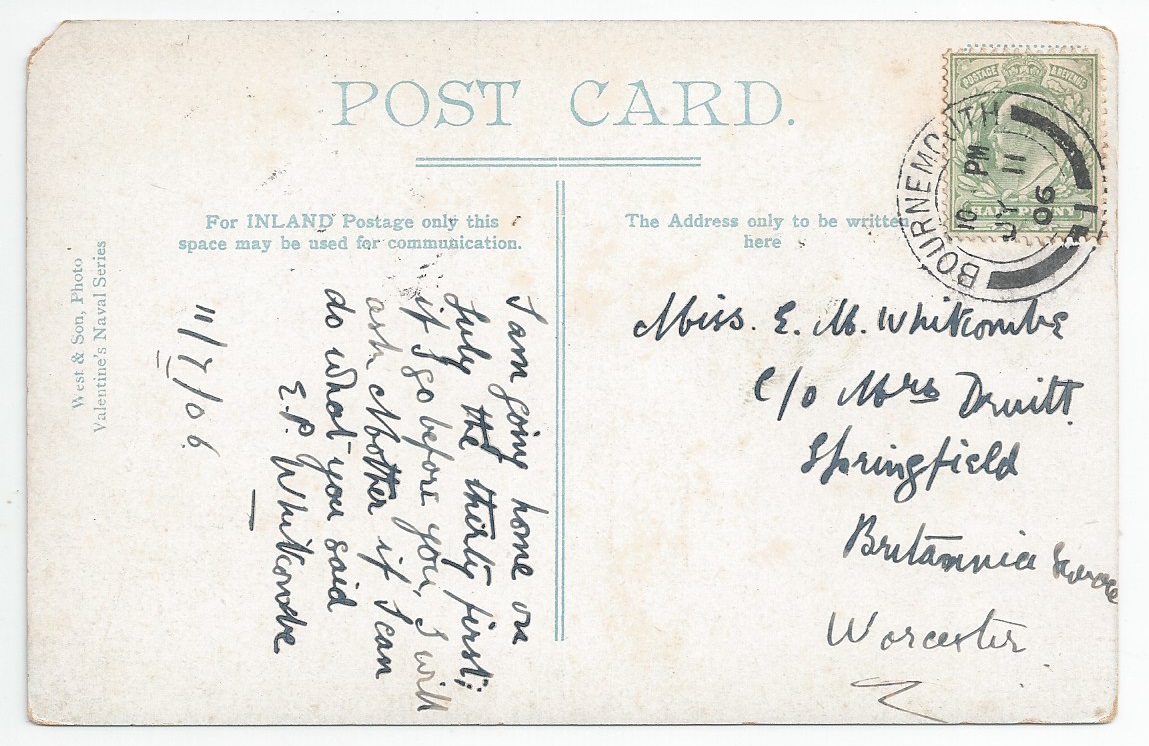 POST CARD.
For INLAND Postage only this
space may be used for communication.
The Address only to be written
here
West & Son, Photo
Valentine's Naval Series
POSTAGE & REVENUE
HALFPENNY
BOURNEMOUTH
10 PM
JY 11
06
I am going home on
July the thirty first;
if I go before you, I will
ask Mother if I can
do what you said
E.P. Whitcombe
11/7/06
Miss. E. M. Whitcombe
C/o Mrs Druitt.
Springfield
Britannia Square
Worcester